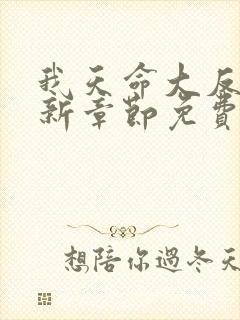 我天命大反
新章節免費
想陪你過冬天